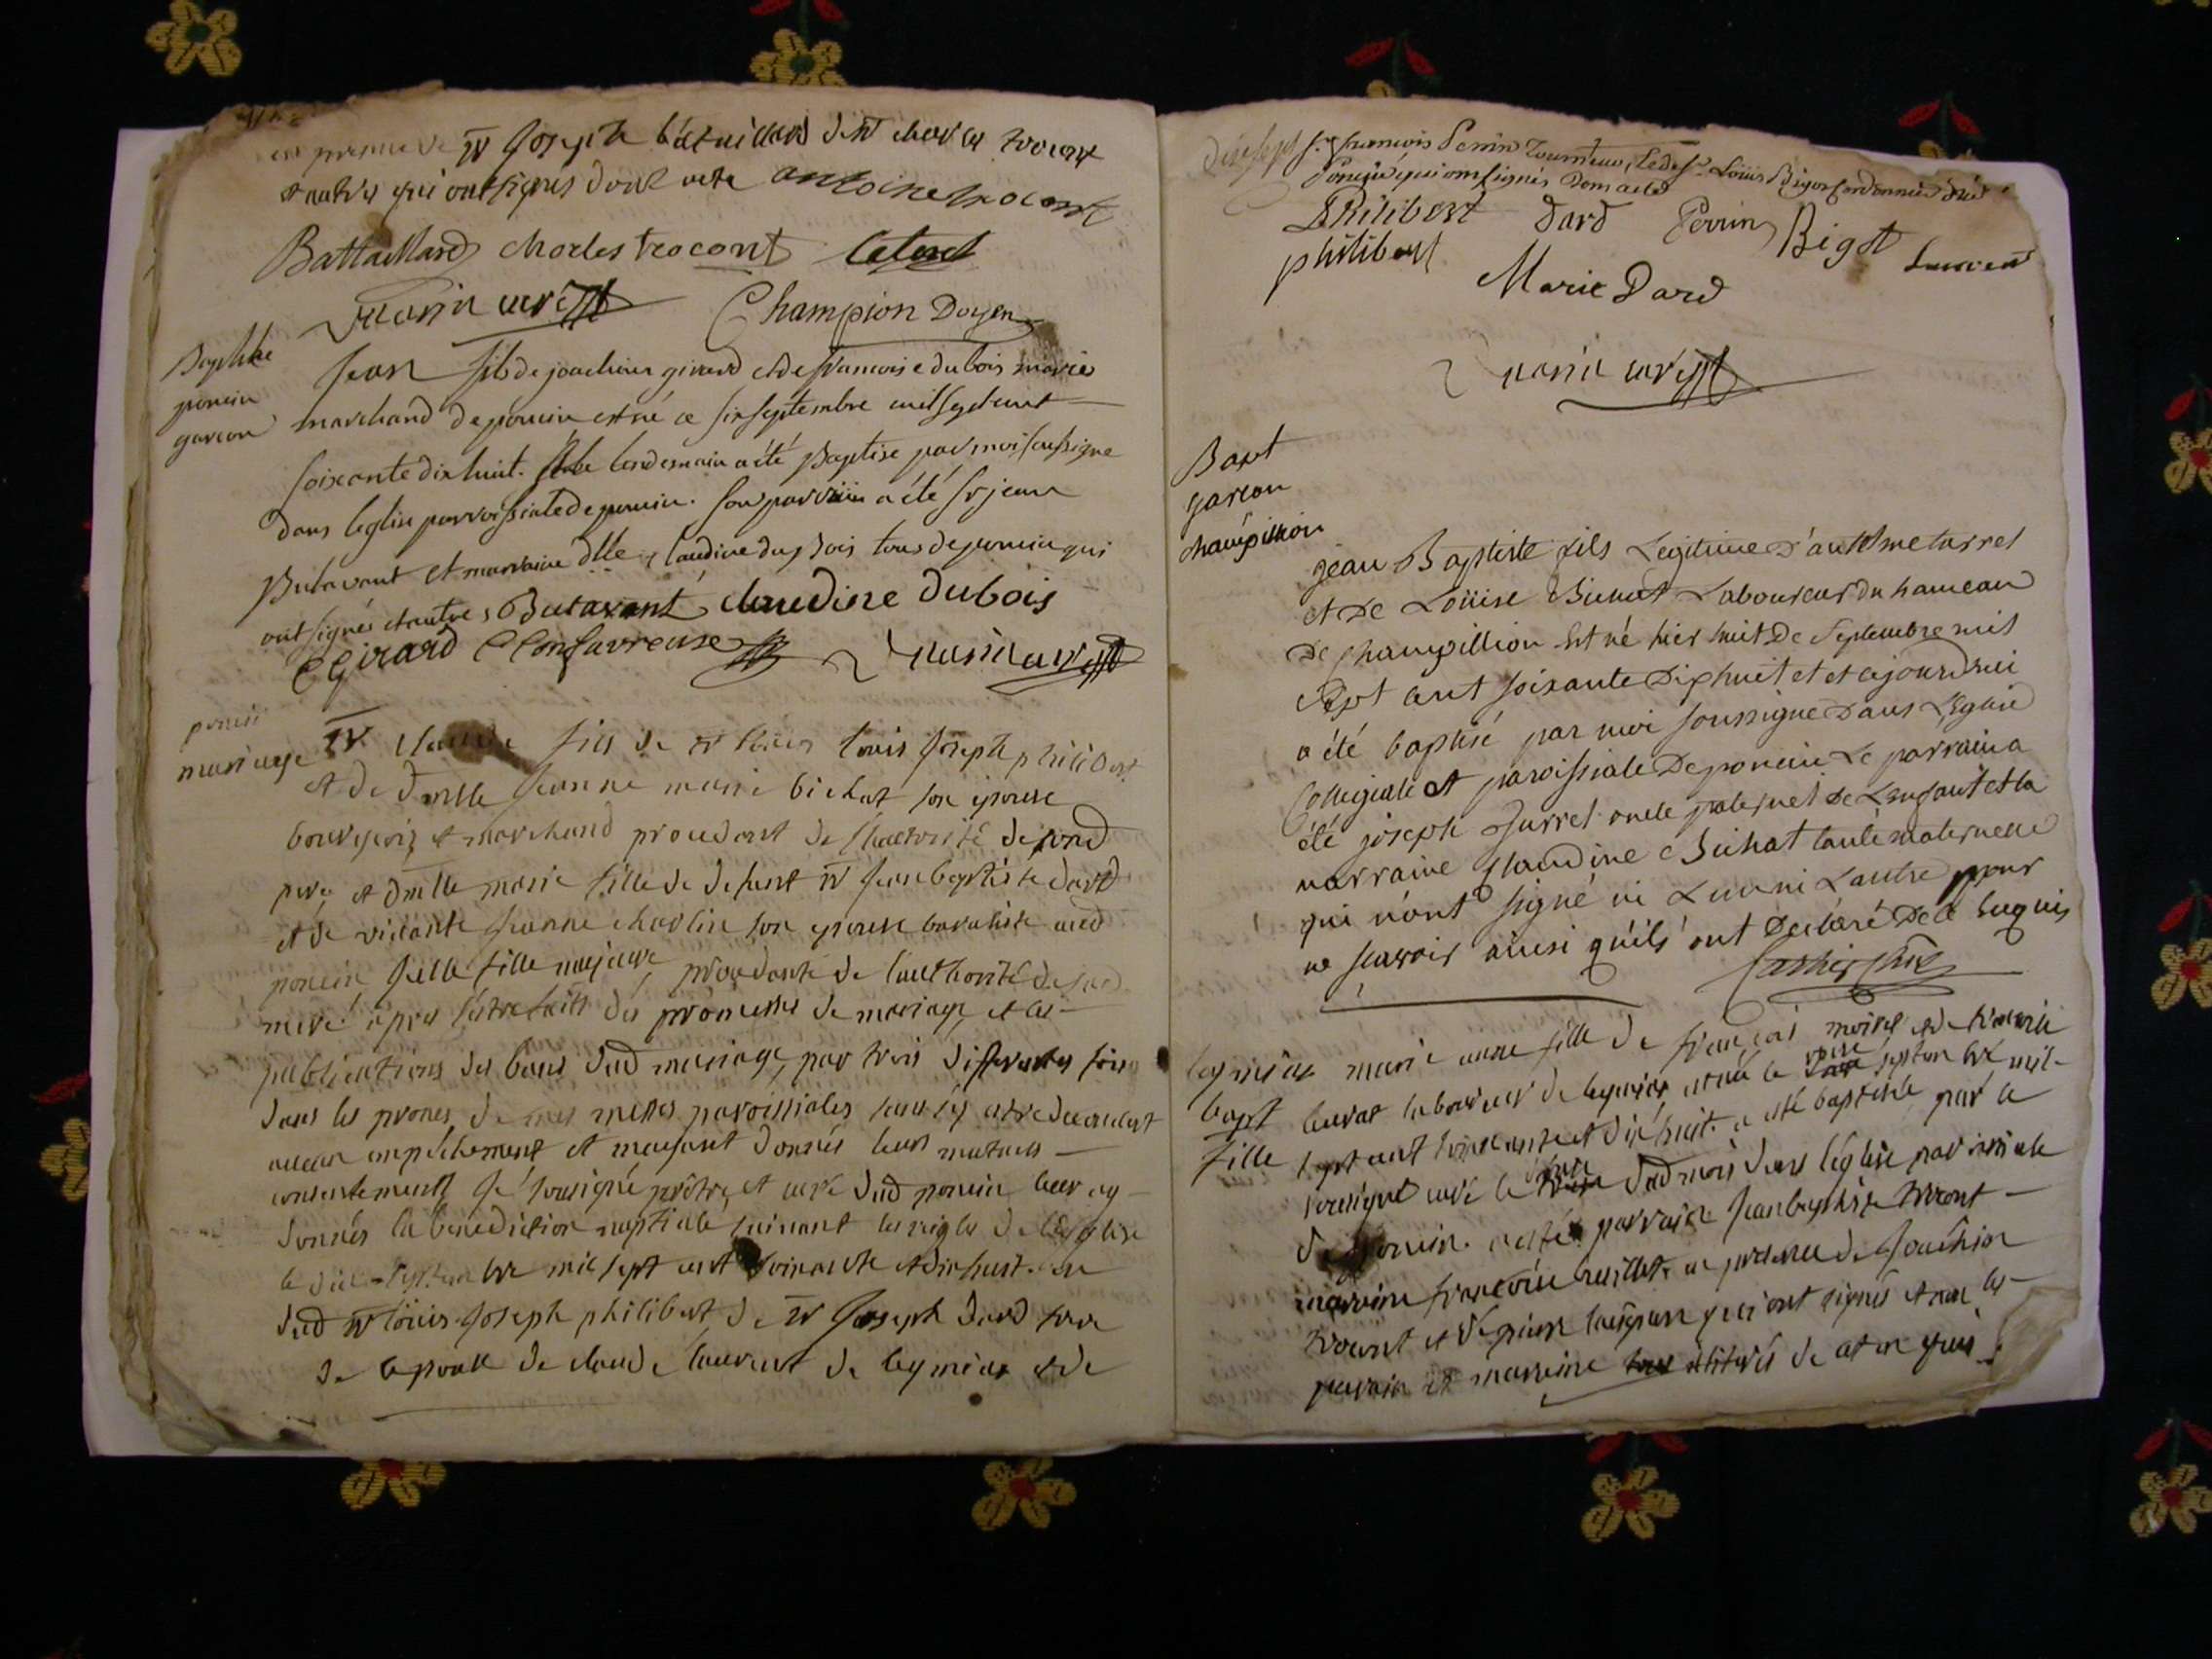 en presence de Sr Joseph bataillard de Sr charles trocont
et autres qui ont signes dont acte antoine trocont
Battaillard charles trocont
Champion Doyen
Baptême
poncin
garcon
Jean fils de joachim girard et de francoise dubois mariés
marchand de poncin est né ce six septembre mil sept cent
soixante dix huit. le lendemain a été Baptise par moi soussigne
dans leglise parroissiale de poncin. son parrain a été Sr jean
Butavant et marraine dlle claudine du Bois tous de poncin qui
ont signés et autres Butavant claudine dubois
Girard Confavreuse
poncin
mariage
Sr Claude fils de Sr louis Joseph philibert
et de dmlle Jeanne marie bichat son epouse
bourgeois et marchand procedant de l'authorité de sond
pere et dmlle marie fille de defunt Sr Jean baptiste dard
et de vivante Jeanne charlin son epouse aud
poncin fille majeure, procedante de l'authorité de sad
mere après s'etre faits des promesses de mariage, et les
publications des bans dud mariage, par trois differentes fois
dans les prones de mes messes paroissiales sans s'y etre decouvert
aucun empêchement et m'ayant donnés leurs mutuels
consentements Je soussigné prêtre et curé dud poncin leur ay
donnés la benediction nuptiale suivant les regles de l'eglise
le dix septembre mil sept cent soixante et dix huit. en
dud Sr louis Joseph philibert de Sr Joseph dard frere
de lepouse de claude laurent de leymiat et de
Sr francois Perrin Tourneur, Led. Sr. Loüis Bigot Cordonnier dud
Poncin qui ont signés Dont acte
Philibert dard Perrin Bigot Laurent
philibert
Marie Dard
Bapt
garcon
champillion
jean Baptiste fils Legitime d'anthelme turrel
et De Loüise Bichat Laboureur du hameau
De champillion Est né hier huit De Septembre mil
Sept cent soixante Dix huit et et cejourdhui
a été baptisé par moi soussigne Dans L'Eglise
Collegiale et paroissiale De poncin Le parrain a
été joseph Turrel oncle paternel De L'enfant et la
marraine Claudine Bichat tante maternelle
qui n'ont signé ni L'un ni L'autre pour
ne scavoir ainsi qu'ils ont Declaré De ce Enquis
leymiat
bapt
fille
marie anne fille de françois moirel et de
laboureur de leymiat est née le onze septembre mil
sept cent soixante et dix huit. a esté baptisée par le
sousigné curé le dud mois dans l'eglise paroissiale
de poncin. a esté parrain Jean baptiste trocont
marraine francoise en presence de Joachim
trocont et de pierre qui ont signés et non les
parain et marraine illiterés de ce enquis